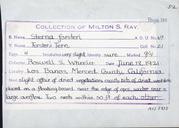 COLLECTION OF MILTON S. RAY.
S. Name Sterna forsteri A.O.U. No. 69
E. Name Forster's Tern Coll. No. 21
Eggs 4 Incubation very slight Identity sure Marked 4/4
Collector Roswell S. Wheeler Date June 18, 1921
Locality Los Banos, Merced County, California.
Nest slight affair of dried vegetation, mostly bits of dried weeds
placed on a floating board near the edge of open water near a
large overflow. Two nests within 50 ft of each other.